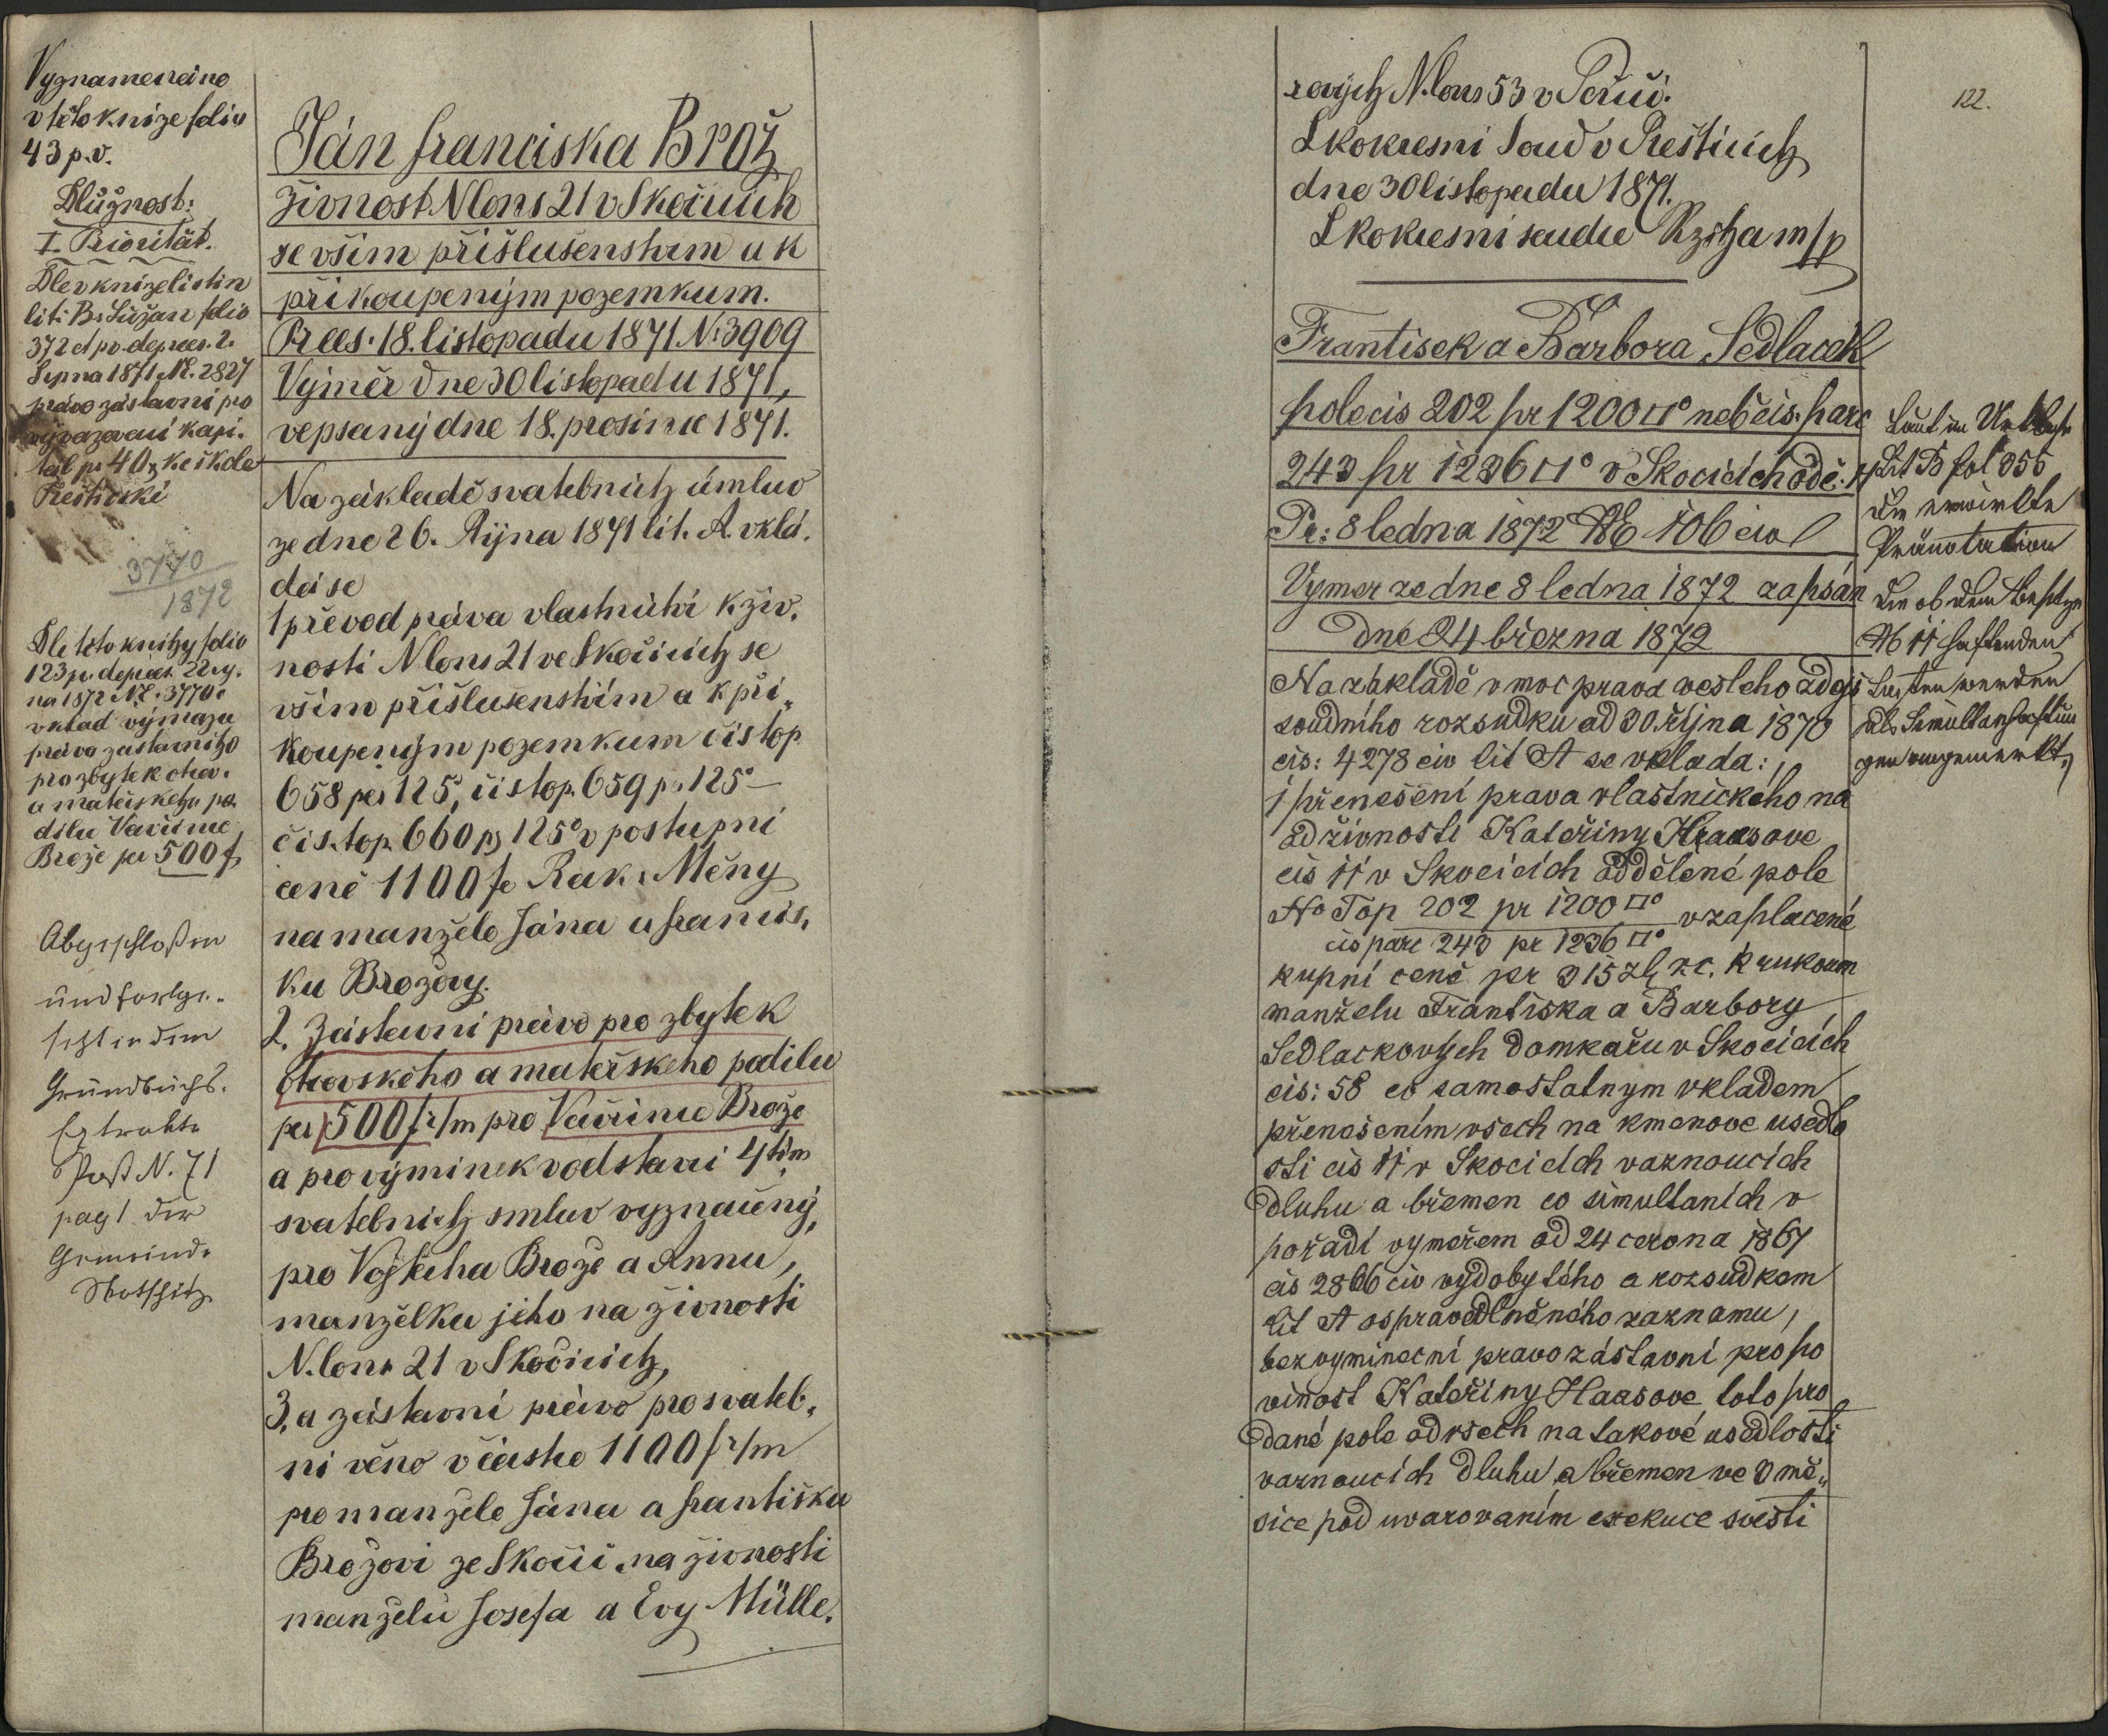 Vyznamenáno
v této knize folio
43 p.v.
Dlužnost:
I. Priorität.
Dle v knize listin
lit: B. Lužan folio
372 et pv. de prees. 2.
Srpna 1871 NE. 2827
právo zástavní pro
vyvazovací kapi.
tál pr 40 ke škole
Přeštické
3770
1872
Dle této knihy folio
123 p. de prees. 22
na 1872 NE. 3770
vklad výmazu
práva zástavního
pro zbytek otcov.
a mateřského po.
dílu Vavřince
Brože per 500 f
Abgeschloßen
und fortge.
setzt in dem
Grundbuchs.
Extrakte
Post N. 71
pag 1 der
Gemeinde
Skotschitz
Ján franciska Brož
živnost N cons 21 v Skočicich
se vším příslušenstvim a k
přikoupeným pozemkum.
Prees. 18. listopadu 1871 N: 3909
Výměr dne 30 listopadu 1871,
vepsaný dne 18. prosince 1871.
Na základě svatebních úmluv
ze dne 26. Října 1871 lit. A. vklá.
dá se
1 převod práva vlastnického k živ.
nosti N cons 21 ve Skočicích se
vším příslušenstvím a k při„
koupeným pozemkum čís top
658 per 125°, čís top. 659 p. 125° –
čís. top. 660 p 125° v postupní
ceně 1100 f Rak. Měny
na manžele Jána a francis,
ku Brožovy.
2. Zástavní právo pro zbytek
otcovského a mateřského podilu
per 500 f r/m pro Vavřince Brože
a pro výminek v odstavci 4tém
svatebních smluv vyznačený,
pro Vojtěcha Brože a Annu,
manželku jeho na živnosti
N. cons 21 v Skočicích,
3, a zástavní právo pro svateb.
ni věno v částce 1100 f r/m
pro manžele Jána a františku
Brožovi ze Skočic na živnosti
manželů Josefa a Evy Mülle.
rových N. cons 53 v
Skokresni Soud v Přešticích
dne 30 listopadu 1871.
Skokresni soudce m/p
122.
Frantisek a Barbora Sedlacek
pole cis 202 pr 1200 □° neb čis. parc
243 pr 1236 □° v Skocicich
Pr: 8 ledna 1872 NE 106 civ
Vymer ze dne 8 ledna 1872 zapsán
dne 24 března 1872
Na zakladě v moc prava vesleho zdejš
soudního rozsudku ad 30. října 1870
cis: 4278 civ lit A se vklada:
1 přenešení prava vlastnického na
od živnosti Kateřiny Haasove
cis 11 v Skocicich oddělené pole
No Top 202 pr 1200 □°
cis parc 243 pr 1236 □° v zaplacené
kupní ceně pr 315 zl r.c. k rukoum
manželu Frantiska a Barbory
Sedlackovych domkařu v Skocicich
cis: 58 co samostatnym vkladem
přenešením vsech na kmenove usedlo
sti cis 11 v Skocicich vaznoucich
dluhu a břemen co simultanich v
pořadí vyměřem od 24 cervna 1867
cis 2866 civ vydobytého a rozsudkem
lit A ospravedlněného zaznamu,
bezvyminecní pravo zástavní pro po
vinost Kateřiny Haasove toto pro
dané pole od vsech na takové usedlosti
vaznoucich dluhu a břemen ve 3 mě„
sice pod uvarovaním exekuce svesti
Laut im Urkbuche
Lit B fol 355
die erwirkte
Pränotation
Die ob dem Besitze
No 11 haftenden
Lasten werden
als Simultanhaftun
gen angemerkt.